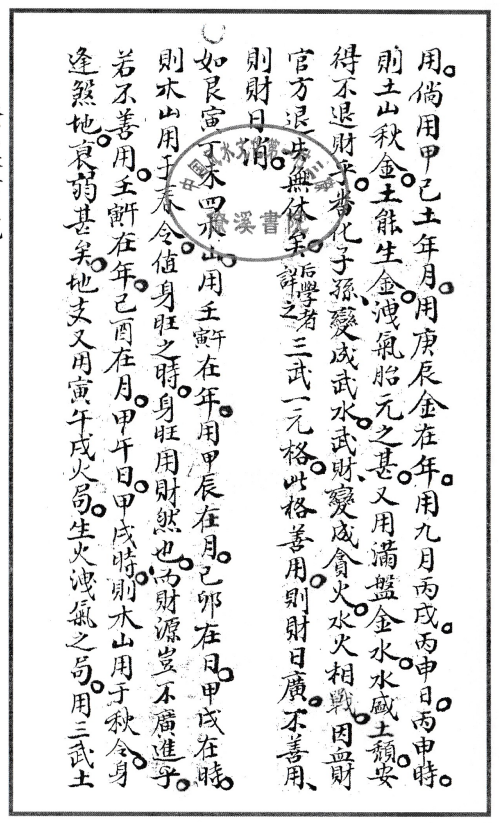 用倘用甲己土年月用庚辰金在年用九月丙戌丙申日丙申時
則土山秋金土能生金洩氣胎元之甚又用滿盤金水水盛土頹安
得不退財乎番化子孫變成武水武財變成貪火水火相戰因血財
官方退失無休矣后學者詳之三武一元格此格善用則財日廣不善用
則財日消
如艮寅丁未四木山用壬寅午在年用甲辰在月己卯在日甲戌在時
則木山用于春令值身旺之時身旺用財然也丙財源豈不廣進乎
若不善用壬寅午在年己酉在月甲午日甲戌時則木山用于秋令身
逢煞地衰弱甚矣地支又用寅午戌火局生火洩氣之局用三武土
中國風水文
樊溪書院